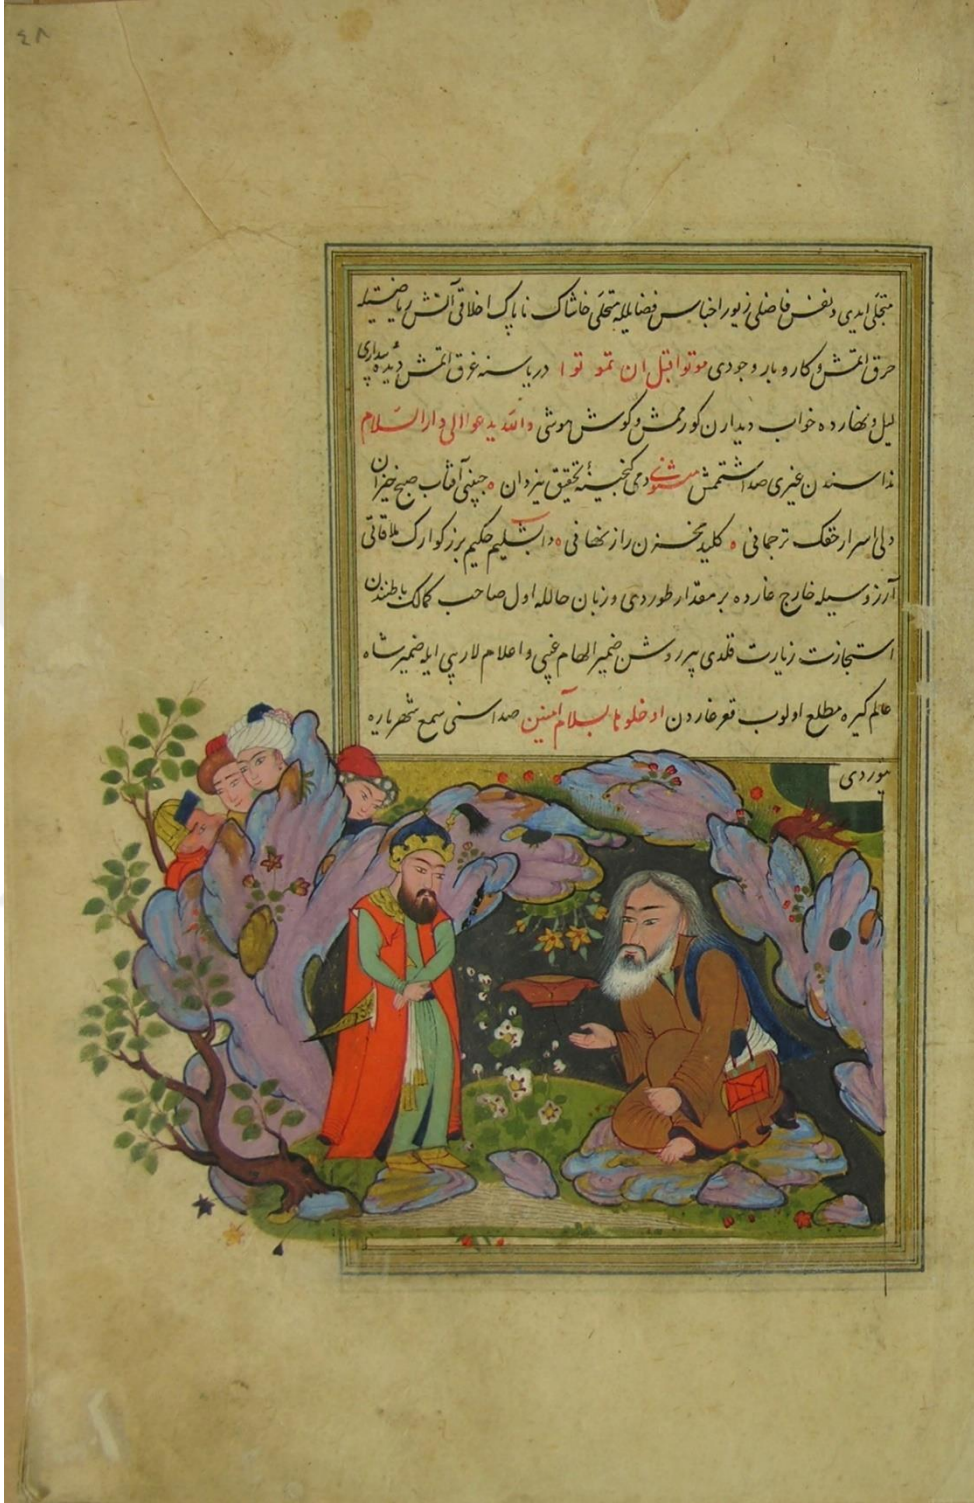 ٤٨
متجلی ایدی و نفس فاضلی زیور اجناس فضایلله متحلی خاشاک ناپاک اخلاقی آتش ریاضتیله
حرق اتمش و کار و بار وجودی موتوا قبل ان تموتوا دریاسنه غرق اتمش دیدهٔ بیداری
لیل و نهارده خواب دیدارن کورممش و کوش هوشی والله یدعوا الی دار السلام
نداسندن غیری صدا اشتمش مثنوی دمی کنجینهٔ تحقیق یزدان ه جبینی آفتاب صبح خیزان
دلی اسرار حقک ترجمانی ه کلید مخزن راز نهانی ه دابشلیم حکیم بزرکوارک ملاقاتی
آرزوسیله خارج غارده بر مقدار طوردی و زبان حالله اول صاحب کمالک باطنندن
استجازت زیارت قلدی پیر روشن ضمیر الهام غیبی و اعلام لاریبی ایله ضمیر شاه
عالم کیره مطلع اولوب قعر غاردن ادخلوها بسلام آمنین صداسنی سمع شهریاره
یوردی